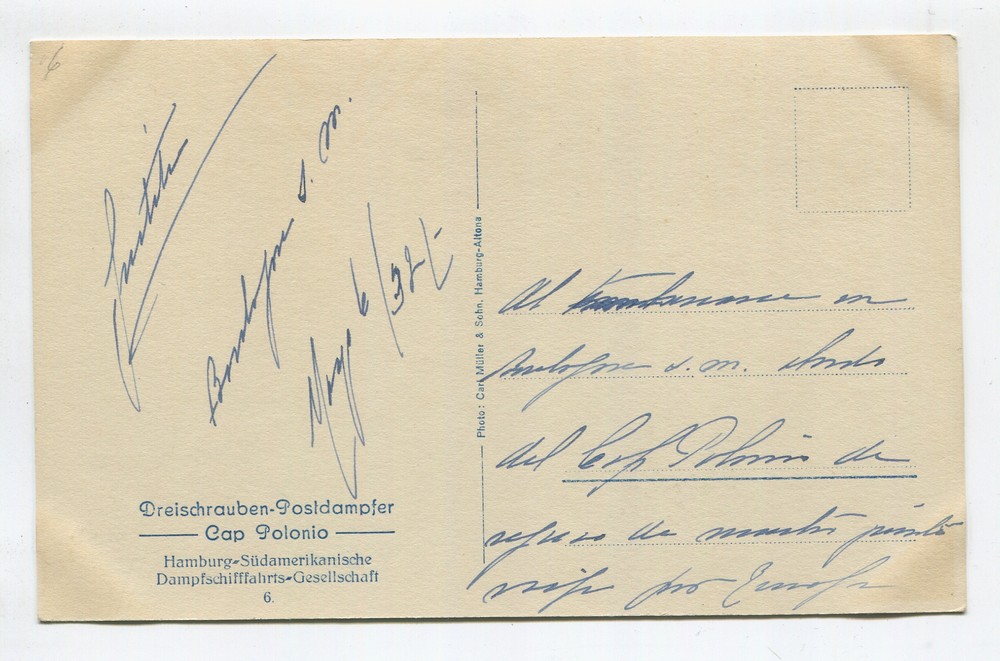 6
Boulogne s. m.
Mayo 6/32
Dreischrauben-Postdampfer
Cap Polonio
Hamburg-Südamerikanische
Dampfschifffahrts-Gesellschaft
6.
Photo: Carl Müller & Sohn, Hamburg-Altona
Al en
Boulogne s. m.
del Cap Polonio de
regreso de nuestro
viaje por Europa